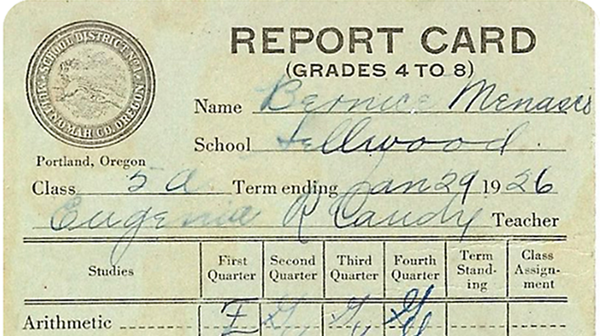 SCHOOL DISTRICT No. 1, MULTNOMAH CO. OREGON
REPORT CARD
(GRADES 4 TO 8)
Name Bernice Menasis
School Sellwood
Portland, Oregon
Class 5a Term ending Jan 29 1926
Eugenia R Candy Teacher
Studies First Quarter Second Quarter Third Quarter Fourth Quarter Term Stand-ing Class Assign-ment
Arithmetic F G G G